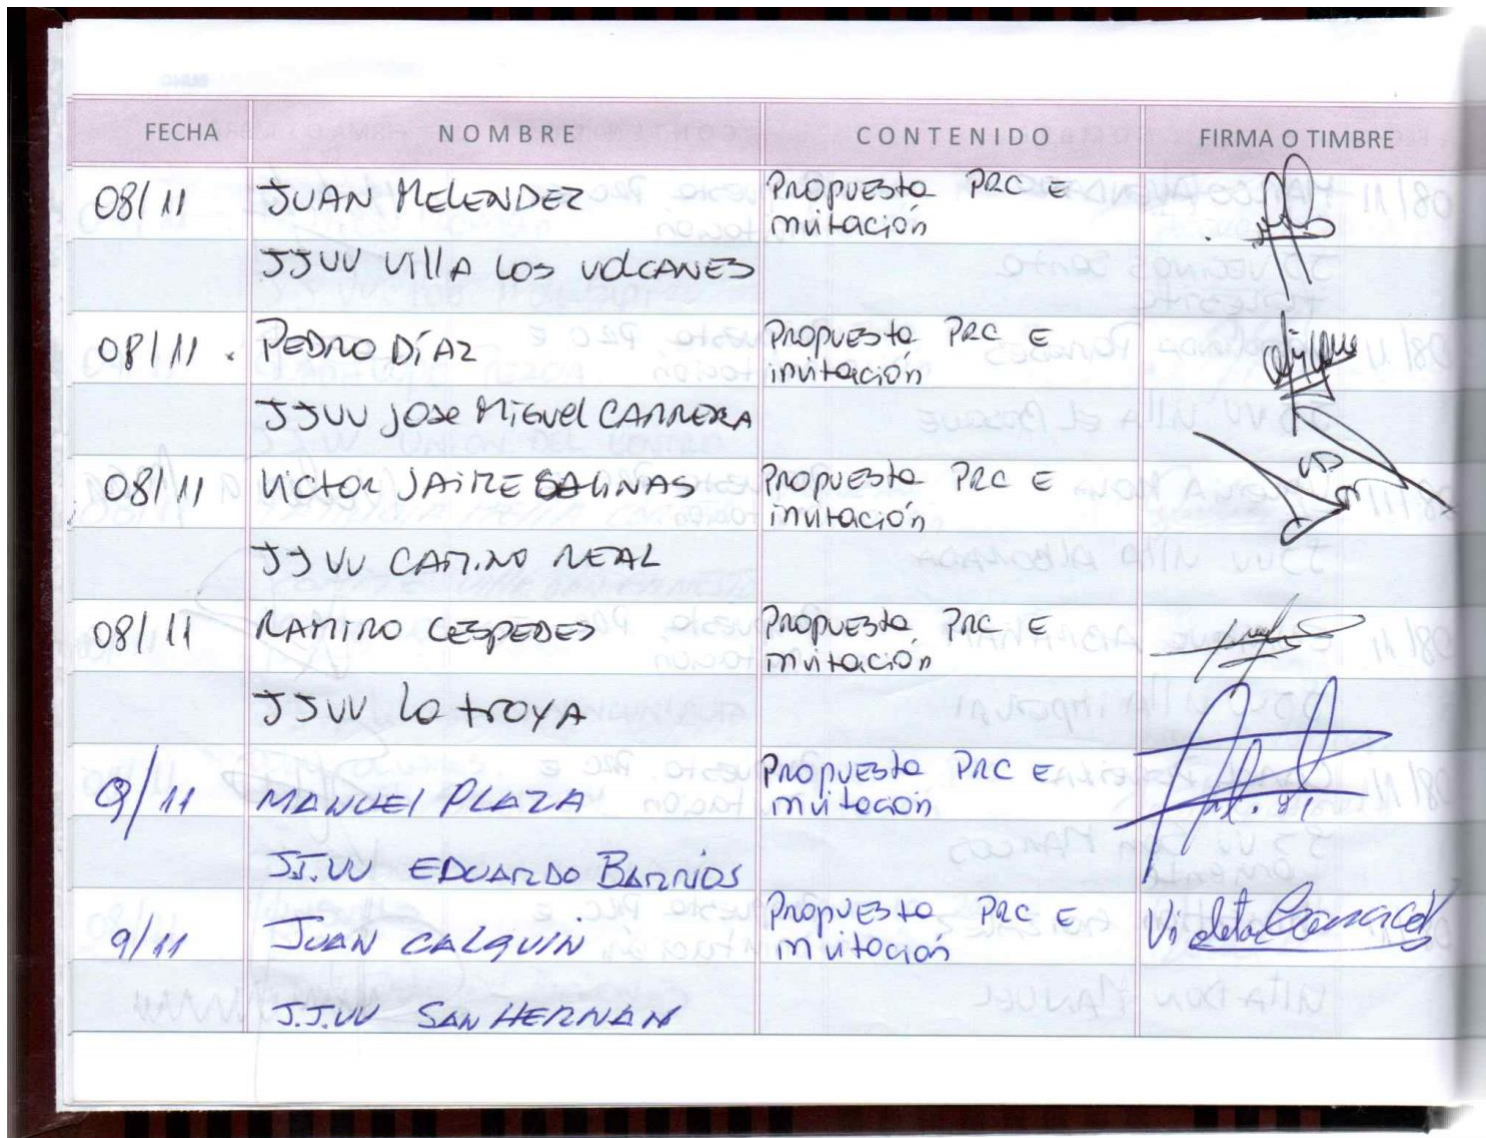 FECHA NOMBRE CONTENIDO FIRMA O TIMBRE
08/11 JUAN MELENDEZ Propuesta PRC E
invitación
JJVV Villa Los Volcanes
08/11 . PEDRO DÍAZ Propuesta PRC E
invitación
JJVV JOSE MIGUEL CARRERA
08/11 VICTOR JAIME SALINAS Propuesta PRC E
invitación
JJVV CAMINO REAL
08/11 RAMIRO CESPEDES Propuesta PRC E
invitación
JJVV La troya
9/11 MANUEL PLAZA Propuesta PRC E
invitación
JJ.VV EDUARDO BARRIOS
9/11 JUAN CALQUIN Propuesta PRC E Violeta
invitación
J.J.VV SAN HERNAN